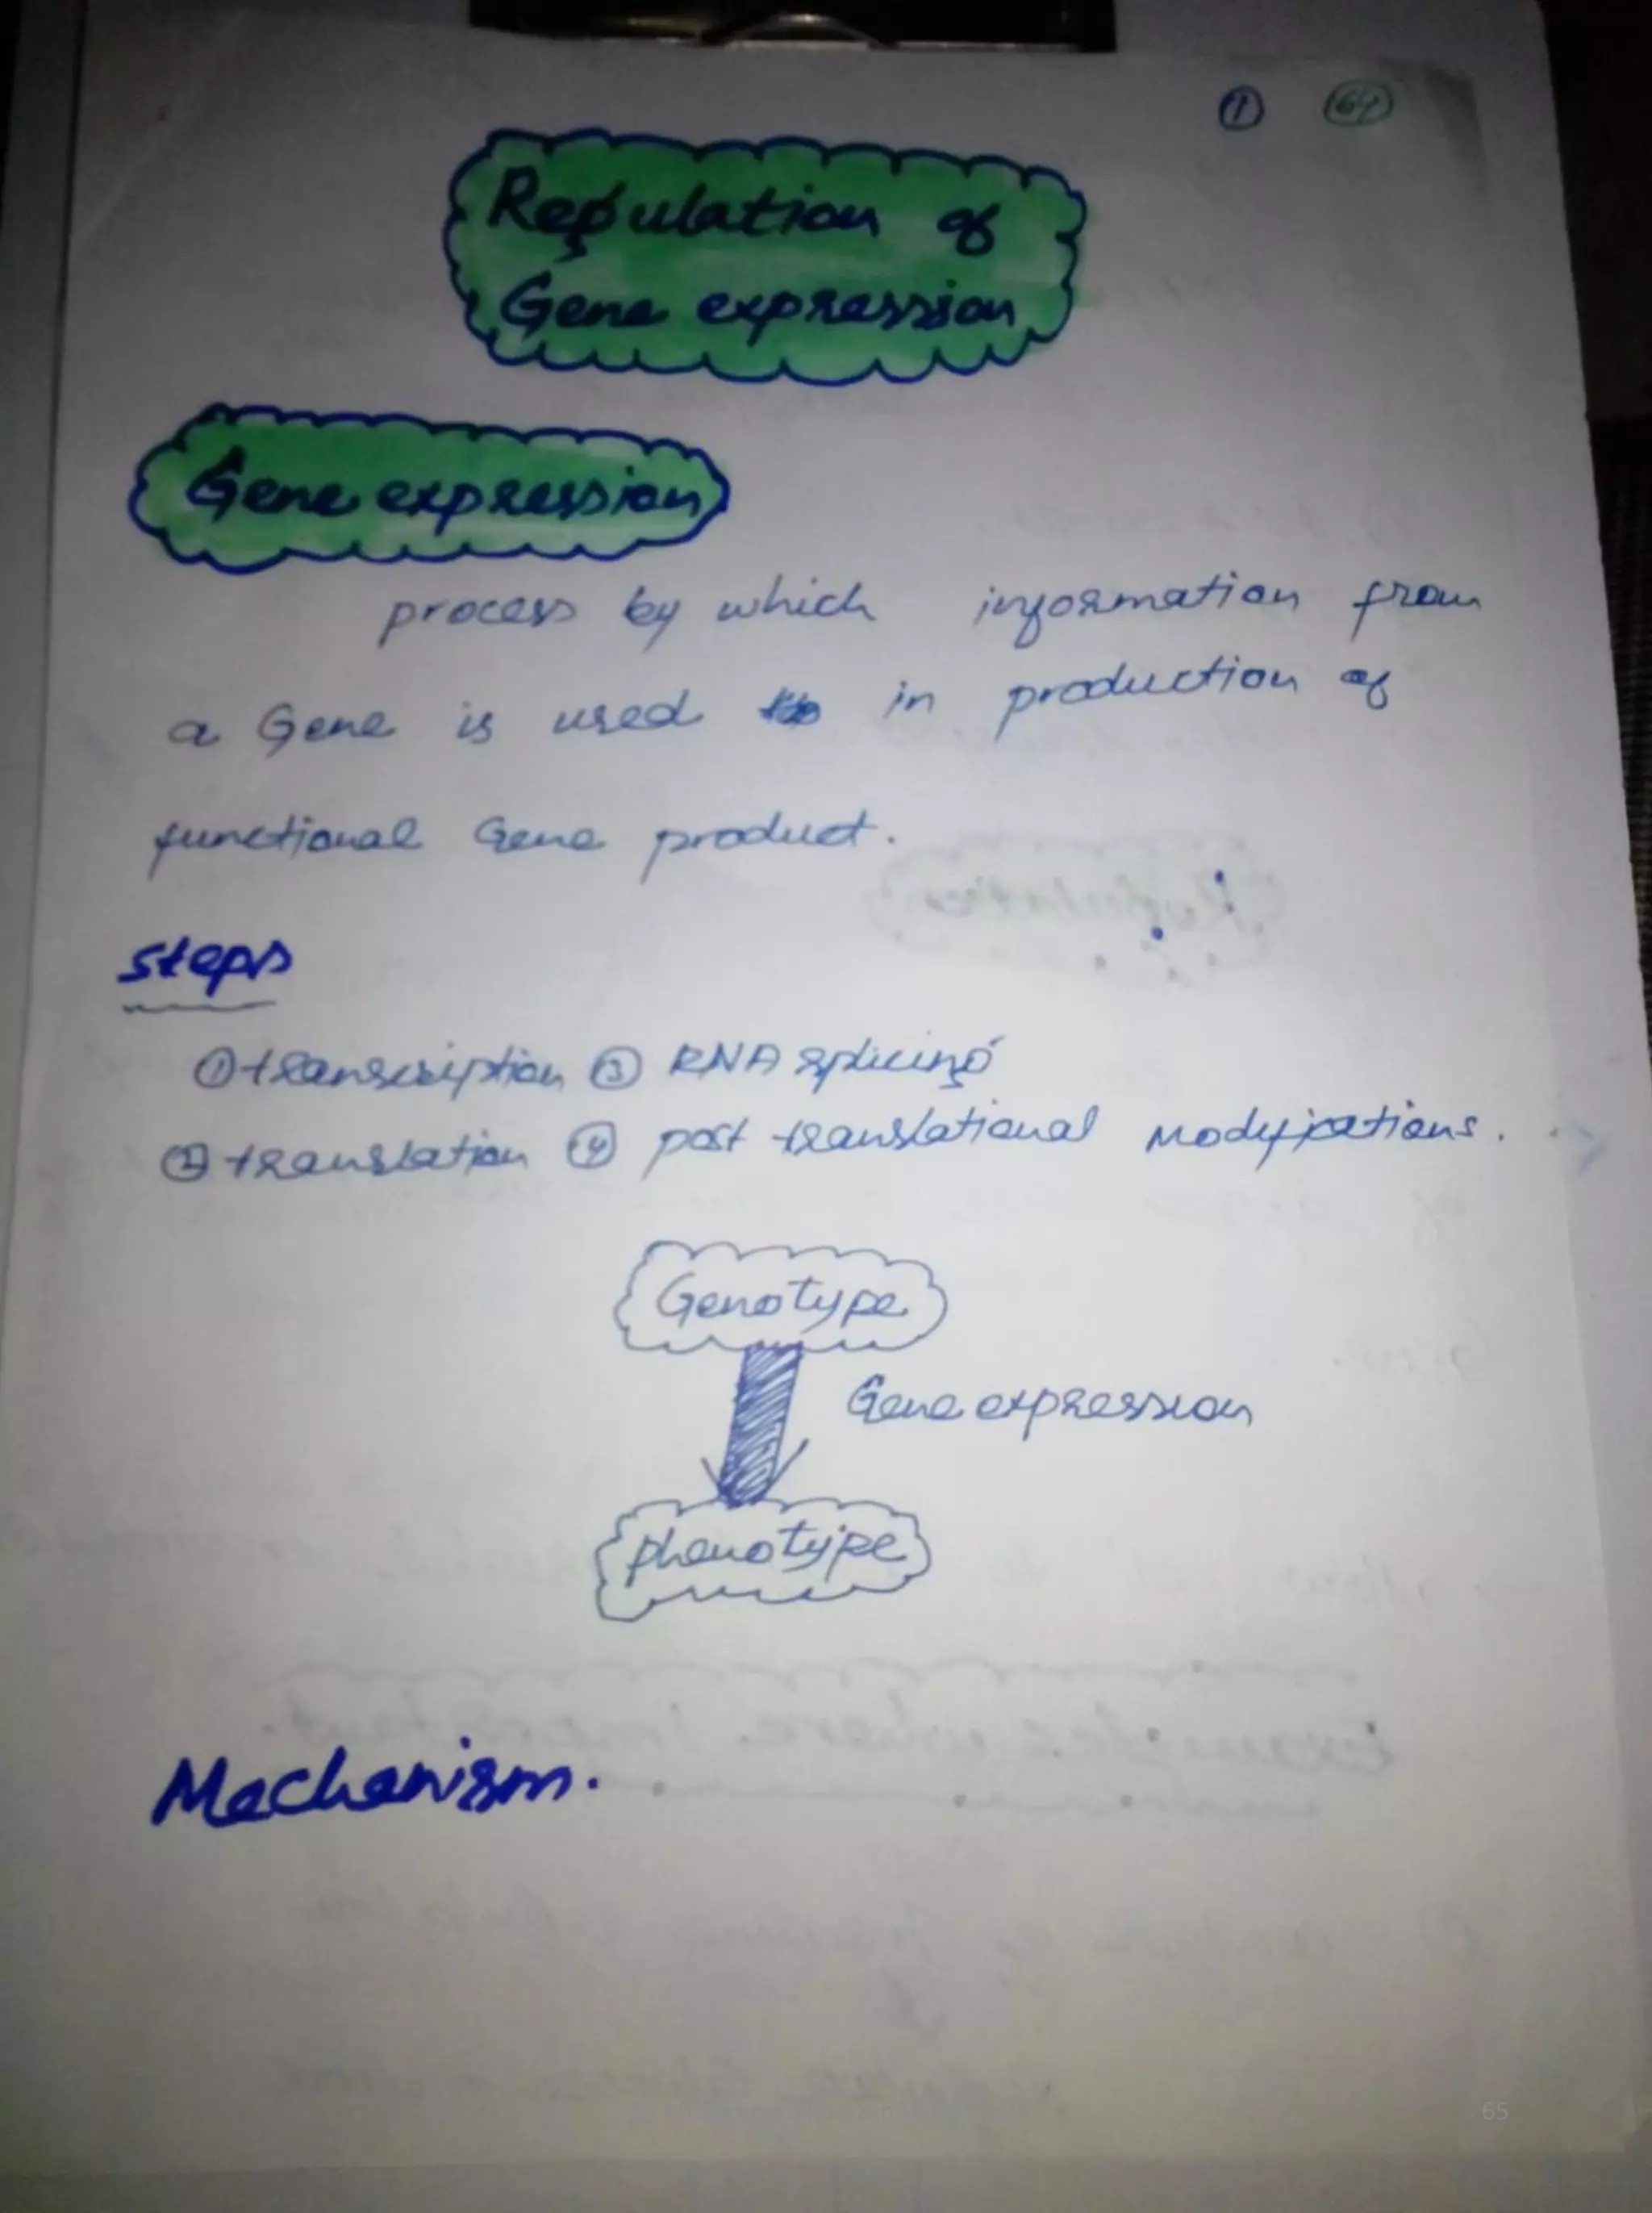 ① 64
Regulation of
Gene expression
Gene expression
process by which information from
a Gene is used in production of
functional Gene product.
steps
① transcription ③ RNA splicing
② translation ④ post translational Modifications.
Genotype
Gene expression
phenotype
Mechanism.
65